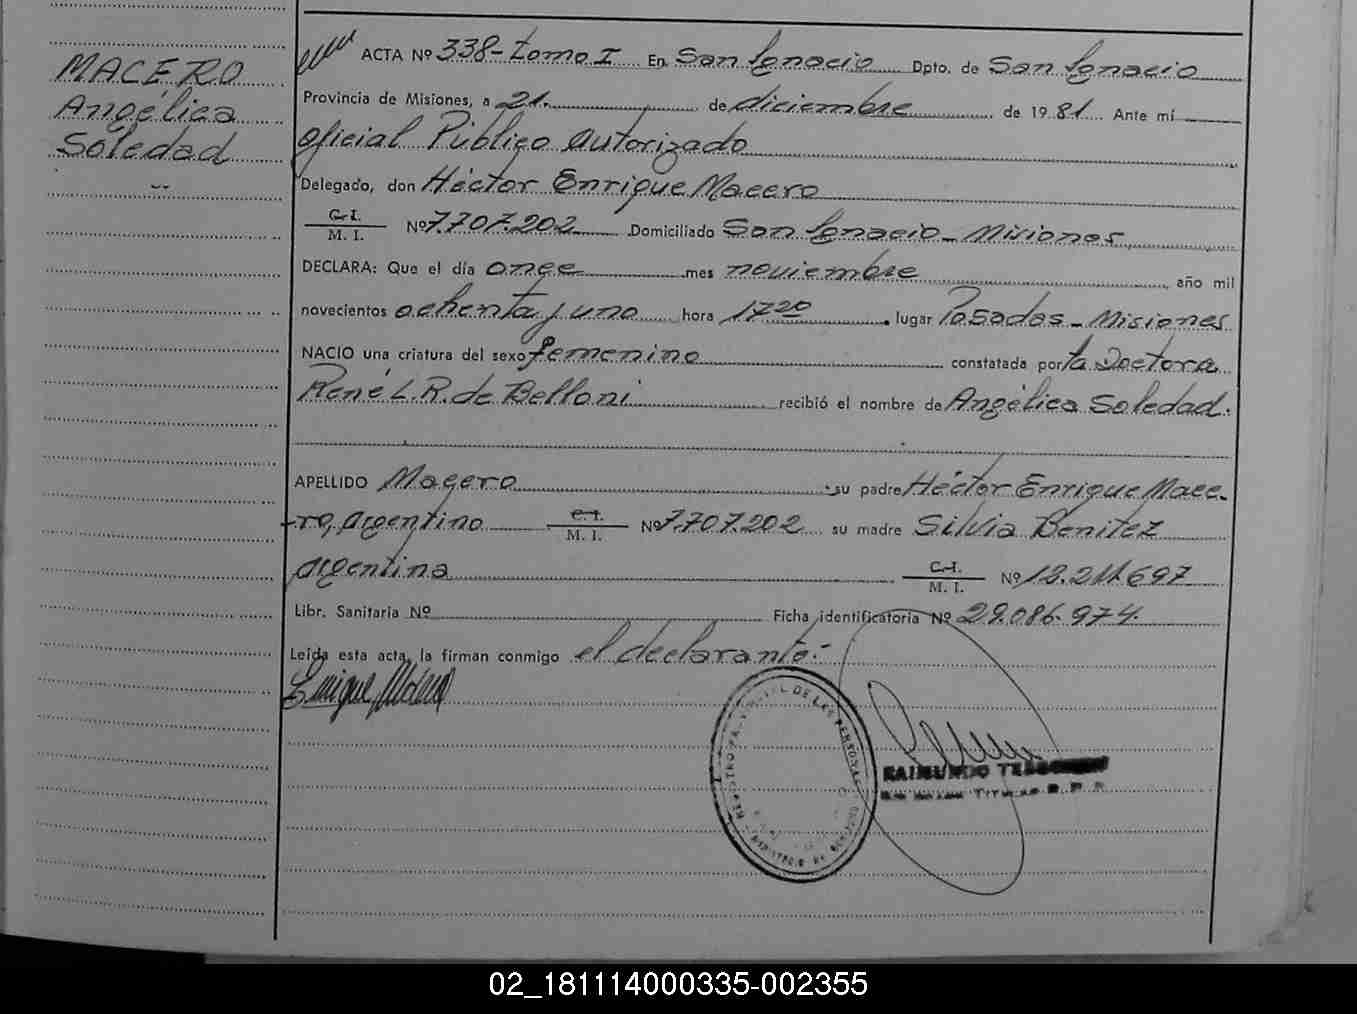 MACERO
Angélica
Soledad
ACTA Nº 338- tomo I En San Ignacio Dpto. de San Ignacio
Provincia de Misiones, a 21. de diciembre de 1981. Ante mí
Oficial Público Autorizado
Delegado, don Héctor Enrique Macero
C. I.
M. I. Nº 7.707.202 Domiciliado San Ignacio - Misiones
DECLARA: Que el día once mes noviembre, año mil
novecientos ochenta y uno hora 17 20 lugar Posadas - Misiones
NACIO una criatura del sexo femenino constatada por la Doctora
René L. R. de Belloni recibió el nombre de Angélica Soledad.
APELLIDO Macero su padre Héctor Enrique Mace-
ro, argentino C. I. M. I. Nº 7.707.202 su madre Silvia Benitez
argentina C. I. M. I. Nº
Libr. Sanitaria Nº Ficha identificatoria Nº 29.086.974.
Leída esta acta, la firman conmigo el declarante.-
Enrique Macero
DE LAS PERSONAS
RAIMUNDO
02_181114000335-002355